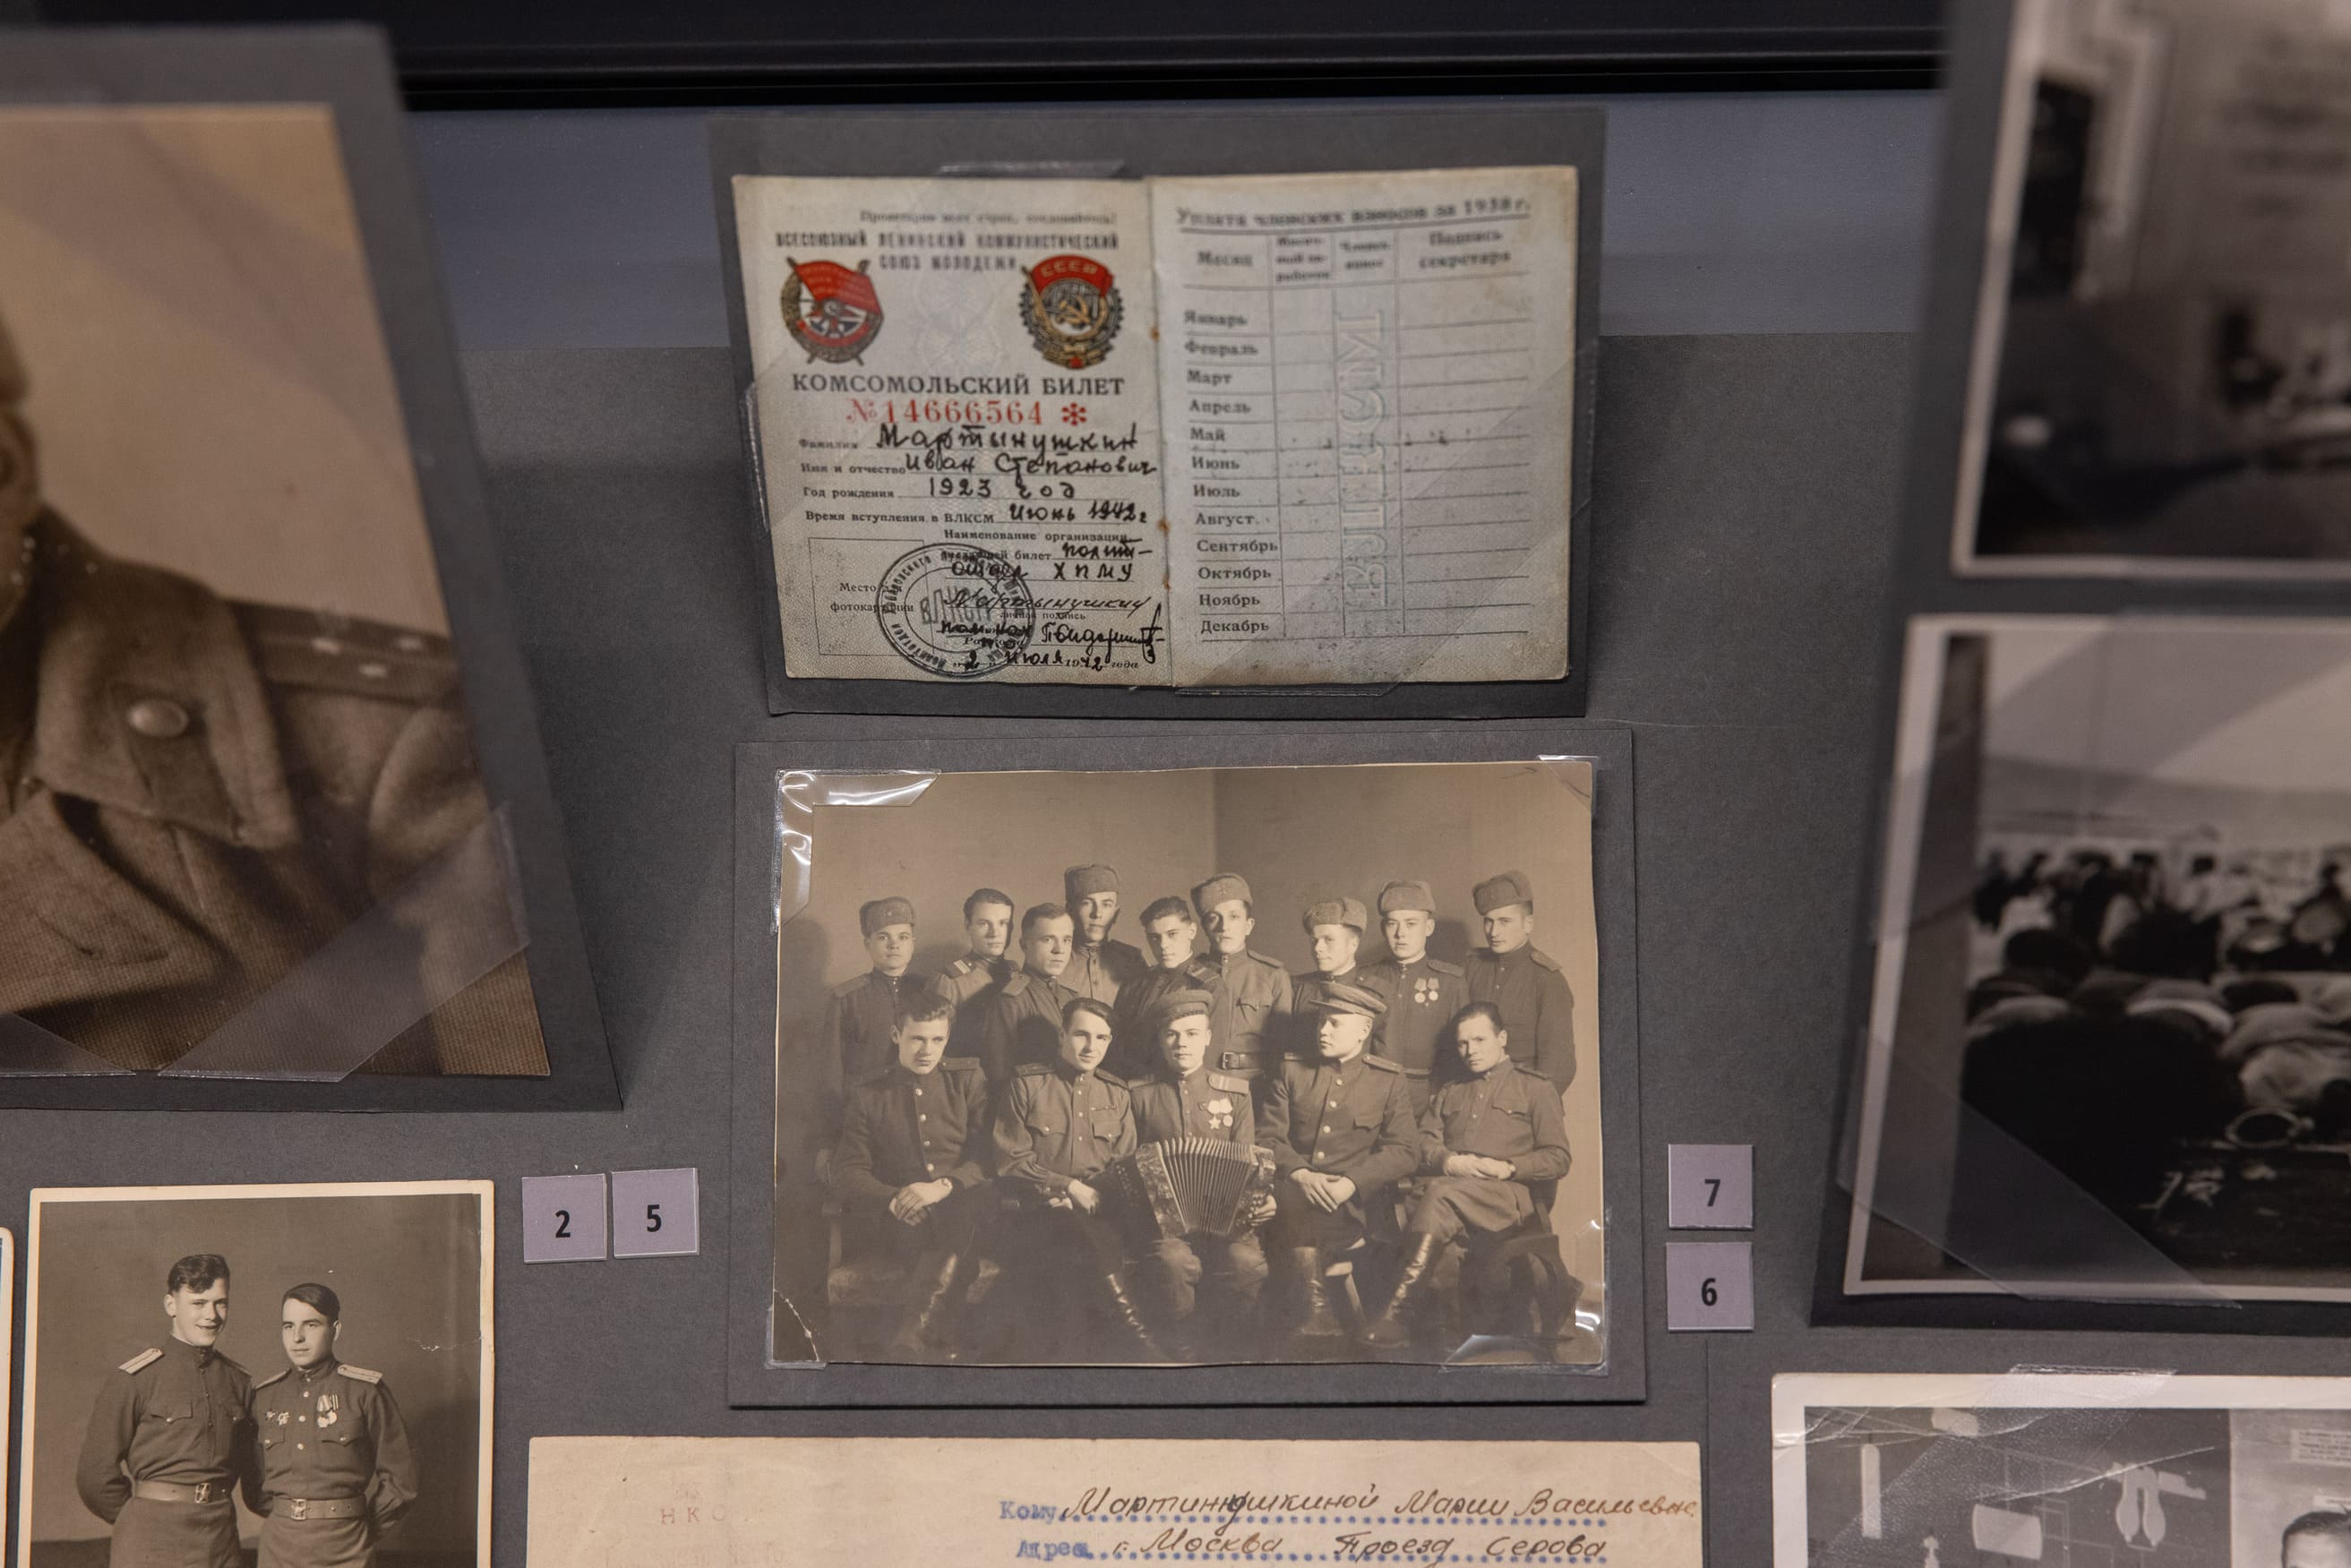 Пролетарии всех стран, соединяйтесь!
ВСЕСОЮЗНЫЙ ЛЕНИНСКИЙ КОММУНИСТИЧЕСКИЙ
СОЮЗ МОЛОДЕЖИ
СССР
КОМСОМОЛЬСКИЙ БИЛЕТ
№14666564 *
Фамилия Мартынушкин
Имя и отчество Иван Степанович
Год рождения 1923 год
Время вступления в ВЛКСМ Июнь 1942г
Наименование организации,
билет полит-
отдел ХПМУ
Место
фотокарточки
ВЛКСМ
Мартынушкин
личная подпись
2 Июля 1942 года
Уплата членских взносов за 1938 г.
Месяц
Подпись
секретаря
Январь
Февраль
Март
Апрель
Май
Июнь
Июль
Август
Сентябрь
Октябрь
Ноябрь
Декабрь
ВЛКСМ
2
5
7
6
НКО
Кому Мартинушкиной Марии Васильевне
Адрес г. Москва Проезд Серова